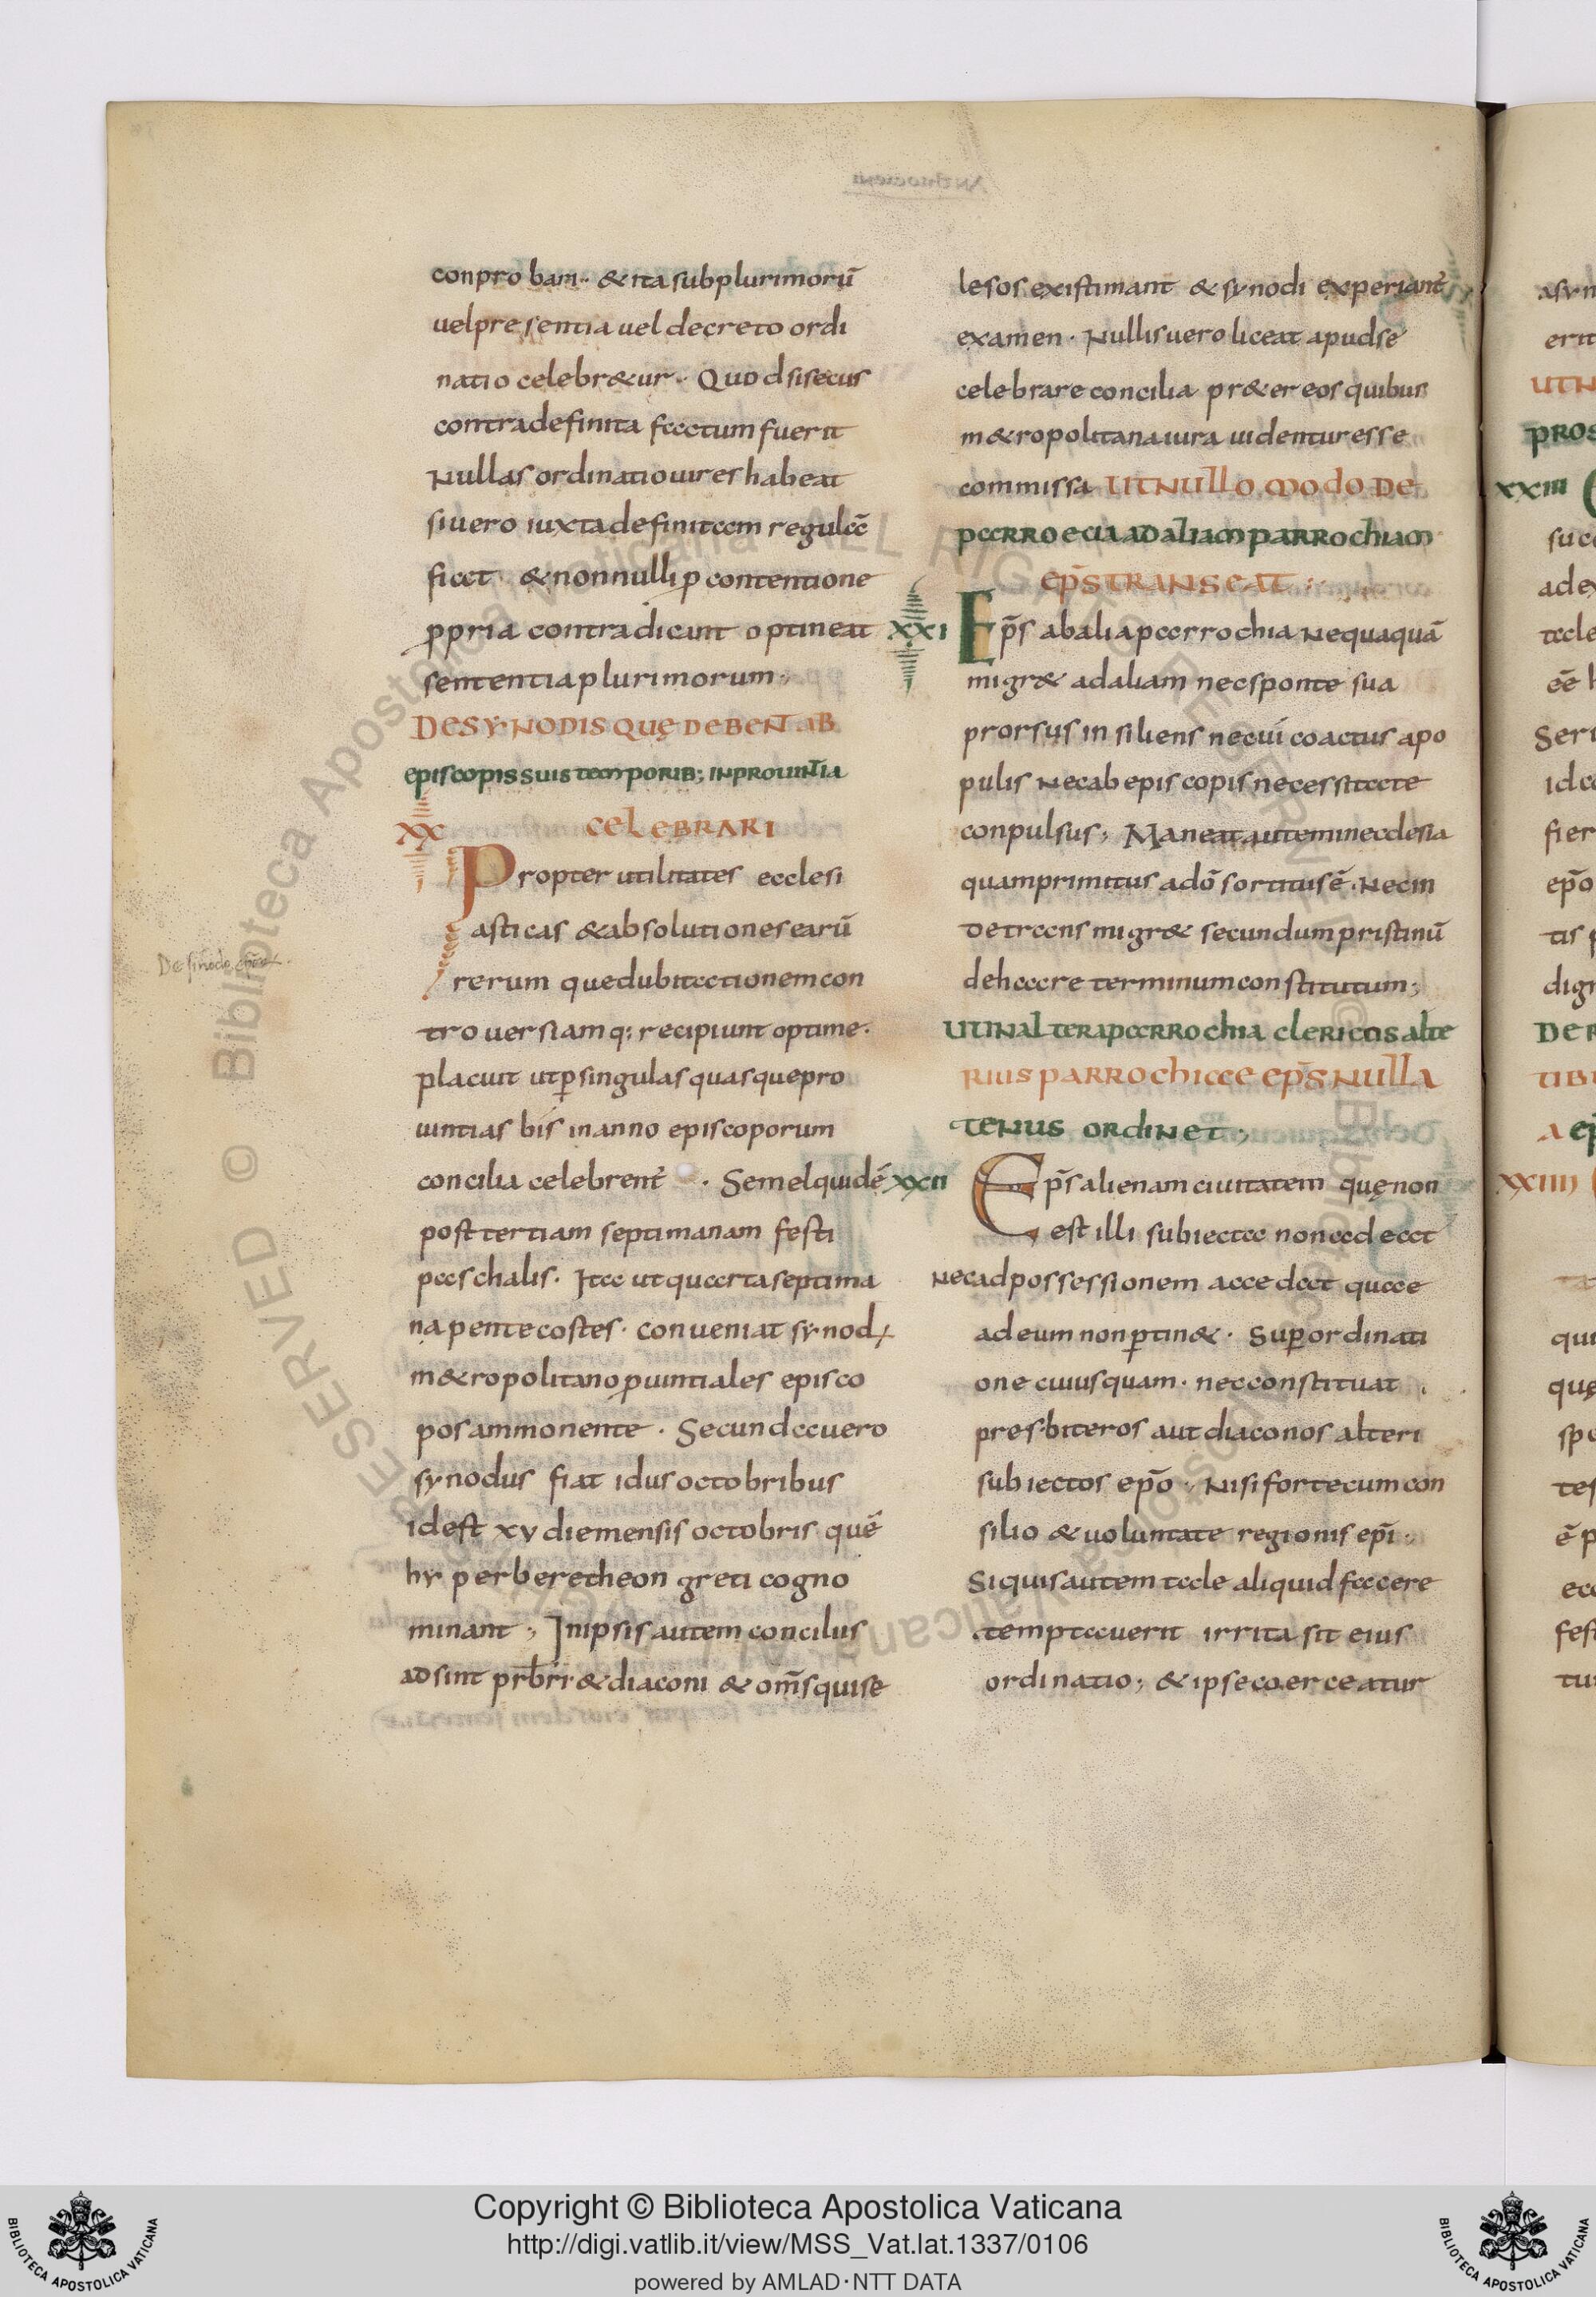 conprobari·· & ita sub plurimorū
uel presentia uel decreto ordi
natio celebr&ur·· Quod si secus
contra definita factum fuerit
Nullas ordinatio uires habeat
si uero iuxta definitam regulā
fiat· & non nulli p contentione
ppria contradicunt optineat
sententia plurimorum·,
DE SYNODIS QUĘ DEBENT AB
episcopis suis temporib; in prouintia
XX CELEBRARI
Propter utilitates ecclesi
asticas & absolutiones earū
rerum que dubitationem con
trouersiamq; recipiunt optime·
placuit ut p singulas quasque pro
uintias bis in anno episcoporum
concilia celebrent· Semel quidē
post tertiam septimanam festi
paschalis· Ita ut quarta septima
na pentecostes· conueniat synod
m&ropolitano puintiales episco
pos ammonente· Secunda uero
synodus fiat idus octobribus
id est xv die mensis octobris quē
hyperberetheon greti cogno
minant; In ipsis autem conciliis
adsint prbri & diaconi & om̄s qui se
De sinodo
lesos existimant & synodi experiant
examen· Nullis uero liceat apud se
celebrare concilia pr&er eos quibus
m&ropolitana iura uidentur esse
commissa UT NULLO MODO DE
parroecia ad aliam parrochiam
ep̄s TRANSEAT
XXI Ep̄s ab alia parrochia nequaquā
migr& ad aliam nec sponte sua
prorsus insiliens nec ui coactus a po
pulis Nec ab episcopis necessitate
conpulsus; Maneat autem in ecclesia
quam primitus a dō sortitus ē· Nec in
de trans migr& secundum pristinū
de hac re terminum constitutum;
UT IN altera parrochia clericos alte
RIUS PARROChiae ep̄s NULLA
TENUS ORDINET;
XXII Ep̄s alienam ciuitatem quę non
est illi subiecta non adeat
Nec ad possessionem accedat quae
ad eum non ptin&· Sup ordinati
one cuiusquam· nec constituat
presbiteros aut diaconos alteri
subiectos ep̄o· Nisi forte cum con
silio & uoluntate regionis ep̄i·
Si quis autem tale aliquid facere
temptauerit irrita sit eius
ordinatio; & ipse coerceatur
XXIII
XXIIII
Copyright © Biblioteca Apostolica Vaticana
http://digi.vatlib.it/view/MSS_Vat.lat.1337/0106
powered by AMLAD·NTT DATA
BIBLIOTECA APOSTOLICA VATICANA
BIBLIOTECA APOSTOLICA VATICANA